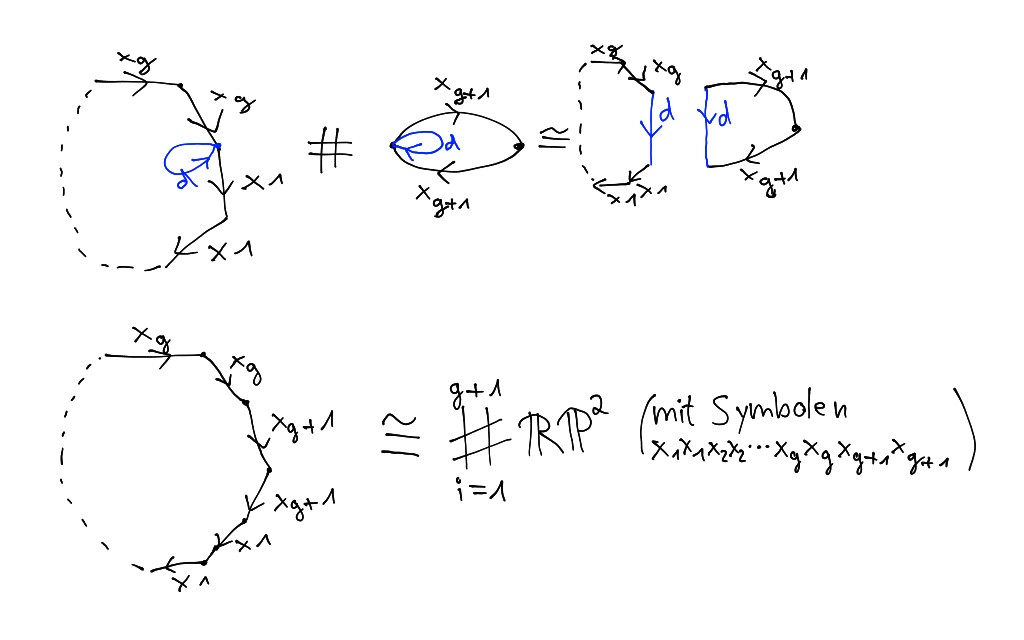 x_g
x_g
d
x1
x1
#
x_{g+1}
d
x_{g+1}
≅
x_g
x_g
d
x1
x1
d
x_{g+1}
x_{g+1}
x_g
x_g
x_{g+1}
x_{g+1}
x1
x1
≅
g+1
# ℝℙ²
i=1
(mit Symbolen
x₁x₁x₂x₂⋯x_gx_gx_{g+1}x_{g+1})